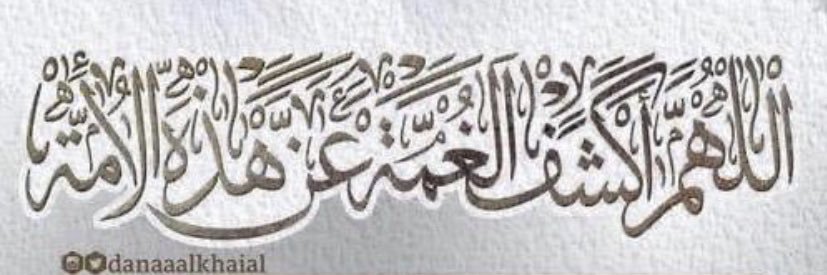 اللهم أكشف الغمة عن هذه الأمة
danaaalkhaial